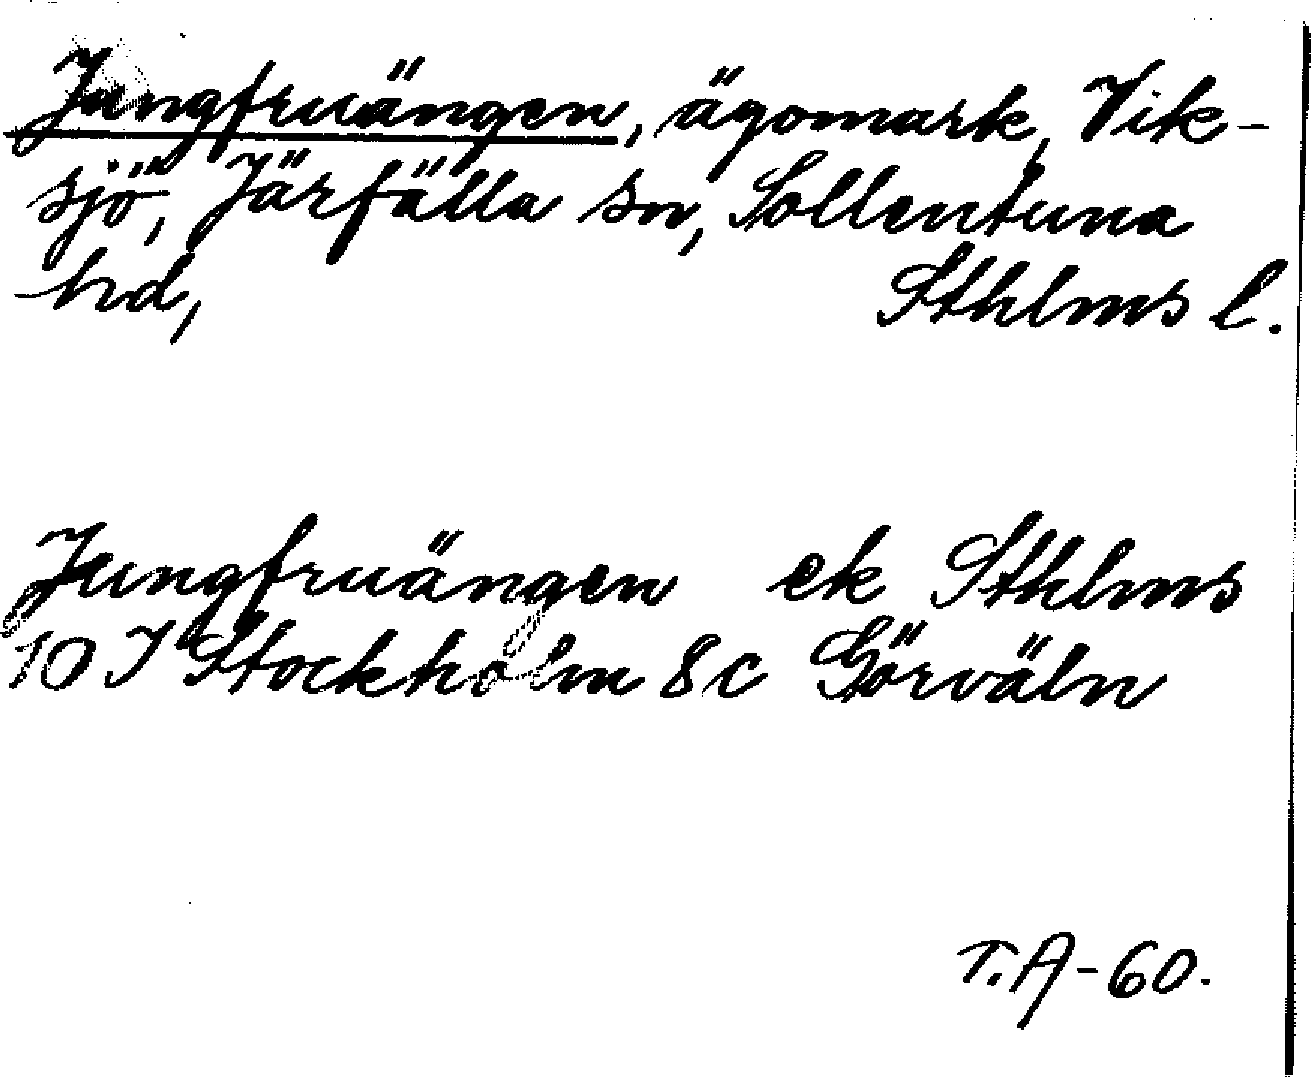 Jungfruängen, ägomark, Vik-
sjö, Järfälla sn, Sollentuna
hd, Sthlms l.
Jungfruängen ek Sthlms
10 I Stockholm 8c Görväln
T.A-60.